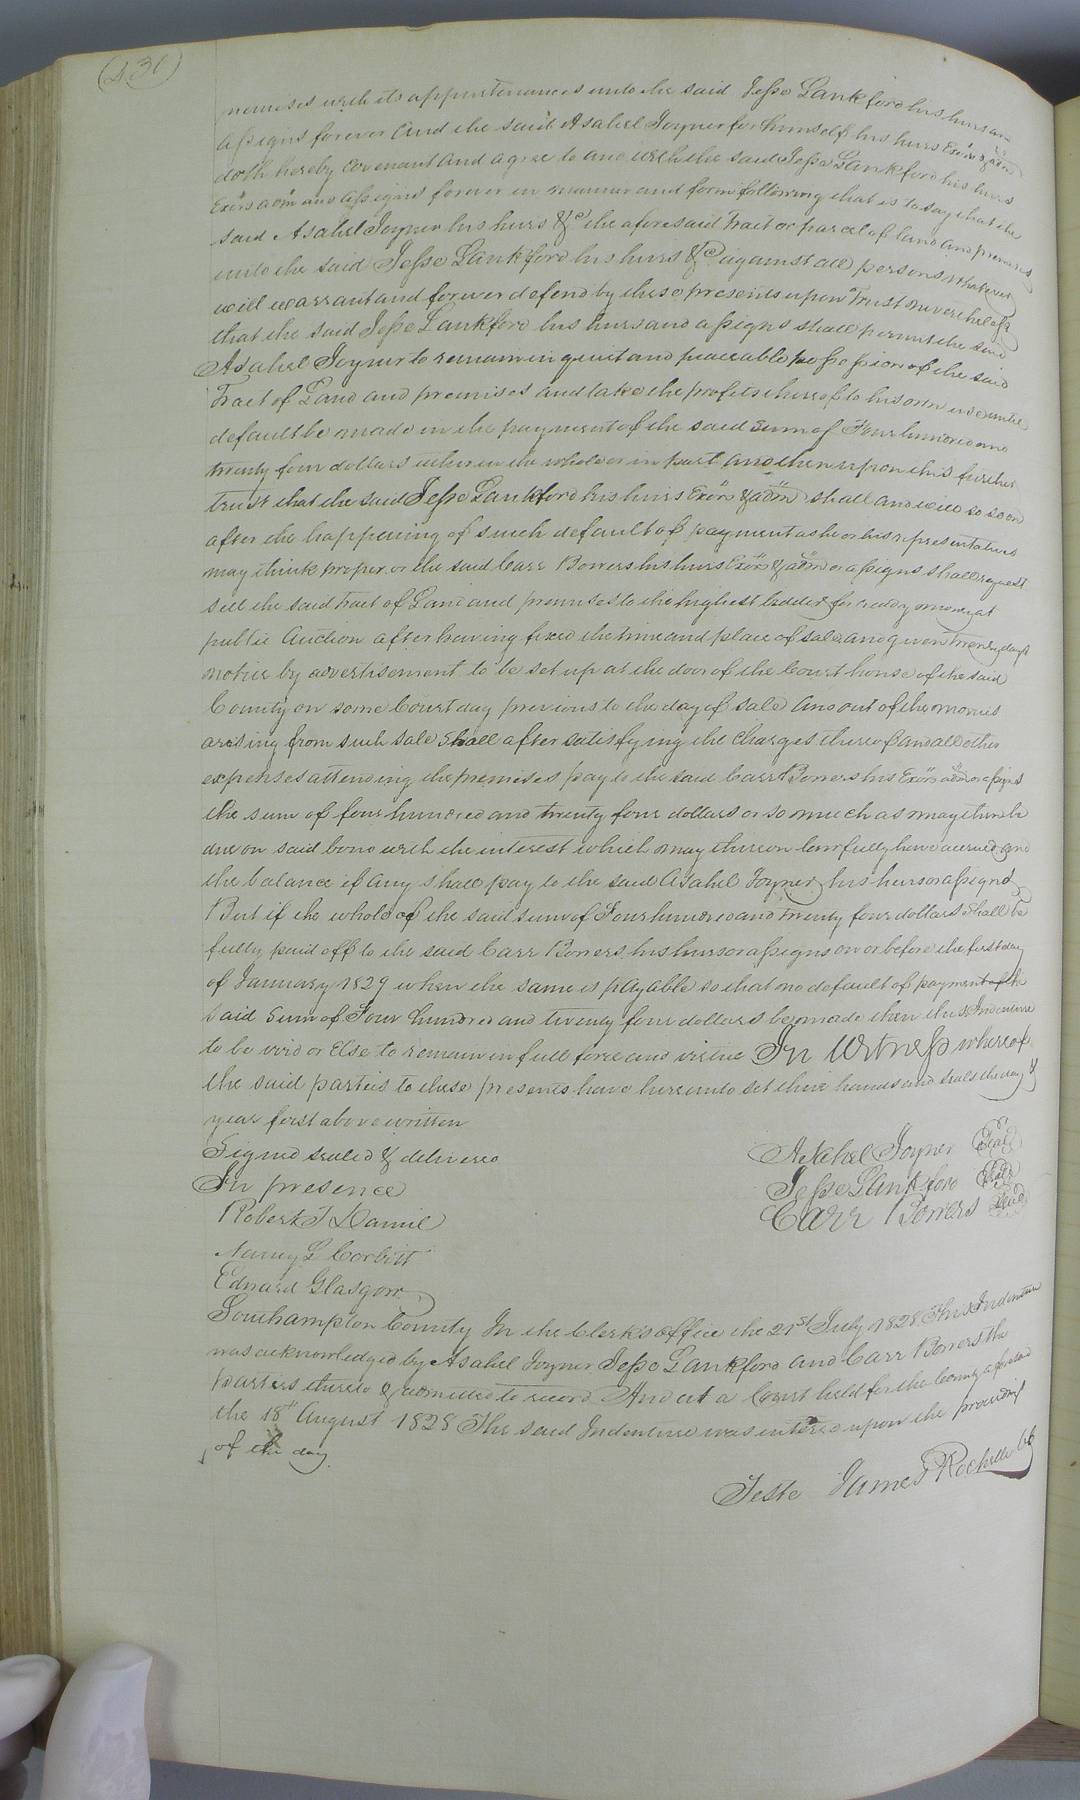 430
premises with its appurtenances unto the said Jesse Lankford his heirs and
assigns forever And the said Asahel Joyner for himself his heirs Exōrs & admr
doth hereby Covenant and agree to and with the said Jesse Lankford his heirs
Exōrs adm and assigns forever in manner and form following that is to say that the
said Asahel Joyner his heirs &c the aforesaid Tract or parcel of land and premises
unto the said Jesse Lankford his heirs &c against all persons whatever
will warrant and forever defend by these presents upon Trust nevertheless
that the said Jesse Lankford his heirs and assigns shall permit the said
Asahel Joyner to remain in quiet and peaceable possession of the said
Tract of Land and premises and take the profits thereof to his own use until
default be made in the payment of the said sum of Four hundred and
twenty four dollars either in the whole or in part and then upon this further
trust that the said Jesse Lankford his heirs Exōrs & adm shall and will so soon
after the happening of such default of payment as he or his representatives
may think proper or the said Carr Bowers his heirs Exōrs & adm or assigns shall request
sell the said tract of Land and premises to the highest bidder for ready money at
public Auction after having fixed the time and place of sale and given twenty days
notice by advertisement to be set up at the door of the Court house of the said
County on some Court day previous to the day of sale And out of the monies
arising from such sale shall after satisfying the charges thereof and all other
expenses attending the premises pay to the said Carr Bowers his Exōrs adm or assigns
the sum of four hundred and twenty four dollars or so much as may then be
due on said bond with the interest which may thereon lawfully have accrued and
the balance if any shall pay to the said Asahel Joyner his heirs or assigns
But if the whole of the said sum of Four hundred and twenty four dollars shall be
fully paid off to the said Carr Bowers his heirs or assigns on or before the first day
of January 1829 when the same is payable so that no default of payment of the
said Sum of Four hundred and twenty four dollars be made then this Indenture
to be void or Else to remain in full force and virtue In Witness whereof
the said parties to these presents have hereunto set their hands and seals the day &
year first above written
Signed sealed & delivered
In presence
Asahel Joyner Seal
Jesse Lankford Seal
Carr Bowers Seal
Robert T Daniel
Nancy L Corbitt
Edward Glasgow
Southampton County In the Clerk's office the 21st July 1828 This Indenture
was acknowledged by Asahel Joyner Jesse Lankford and Carr Bowers the
parties thereto & admitted to record And at a Court held for the County aforesaid
the 18th August 1828 The said Indenture was entered upon the proceedings
of the day
Teste James Rochelle Clk